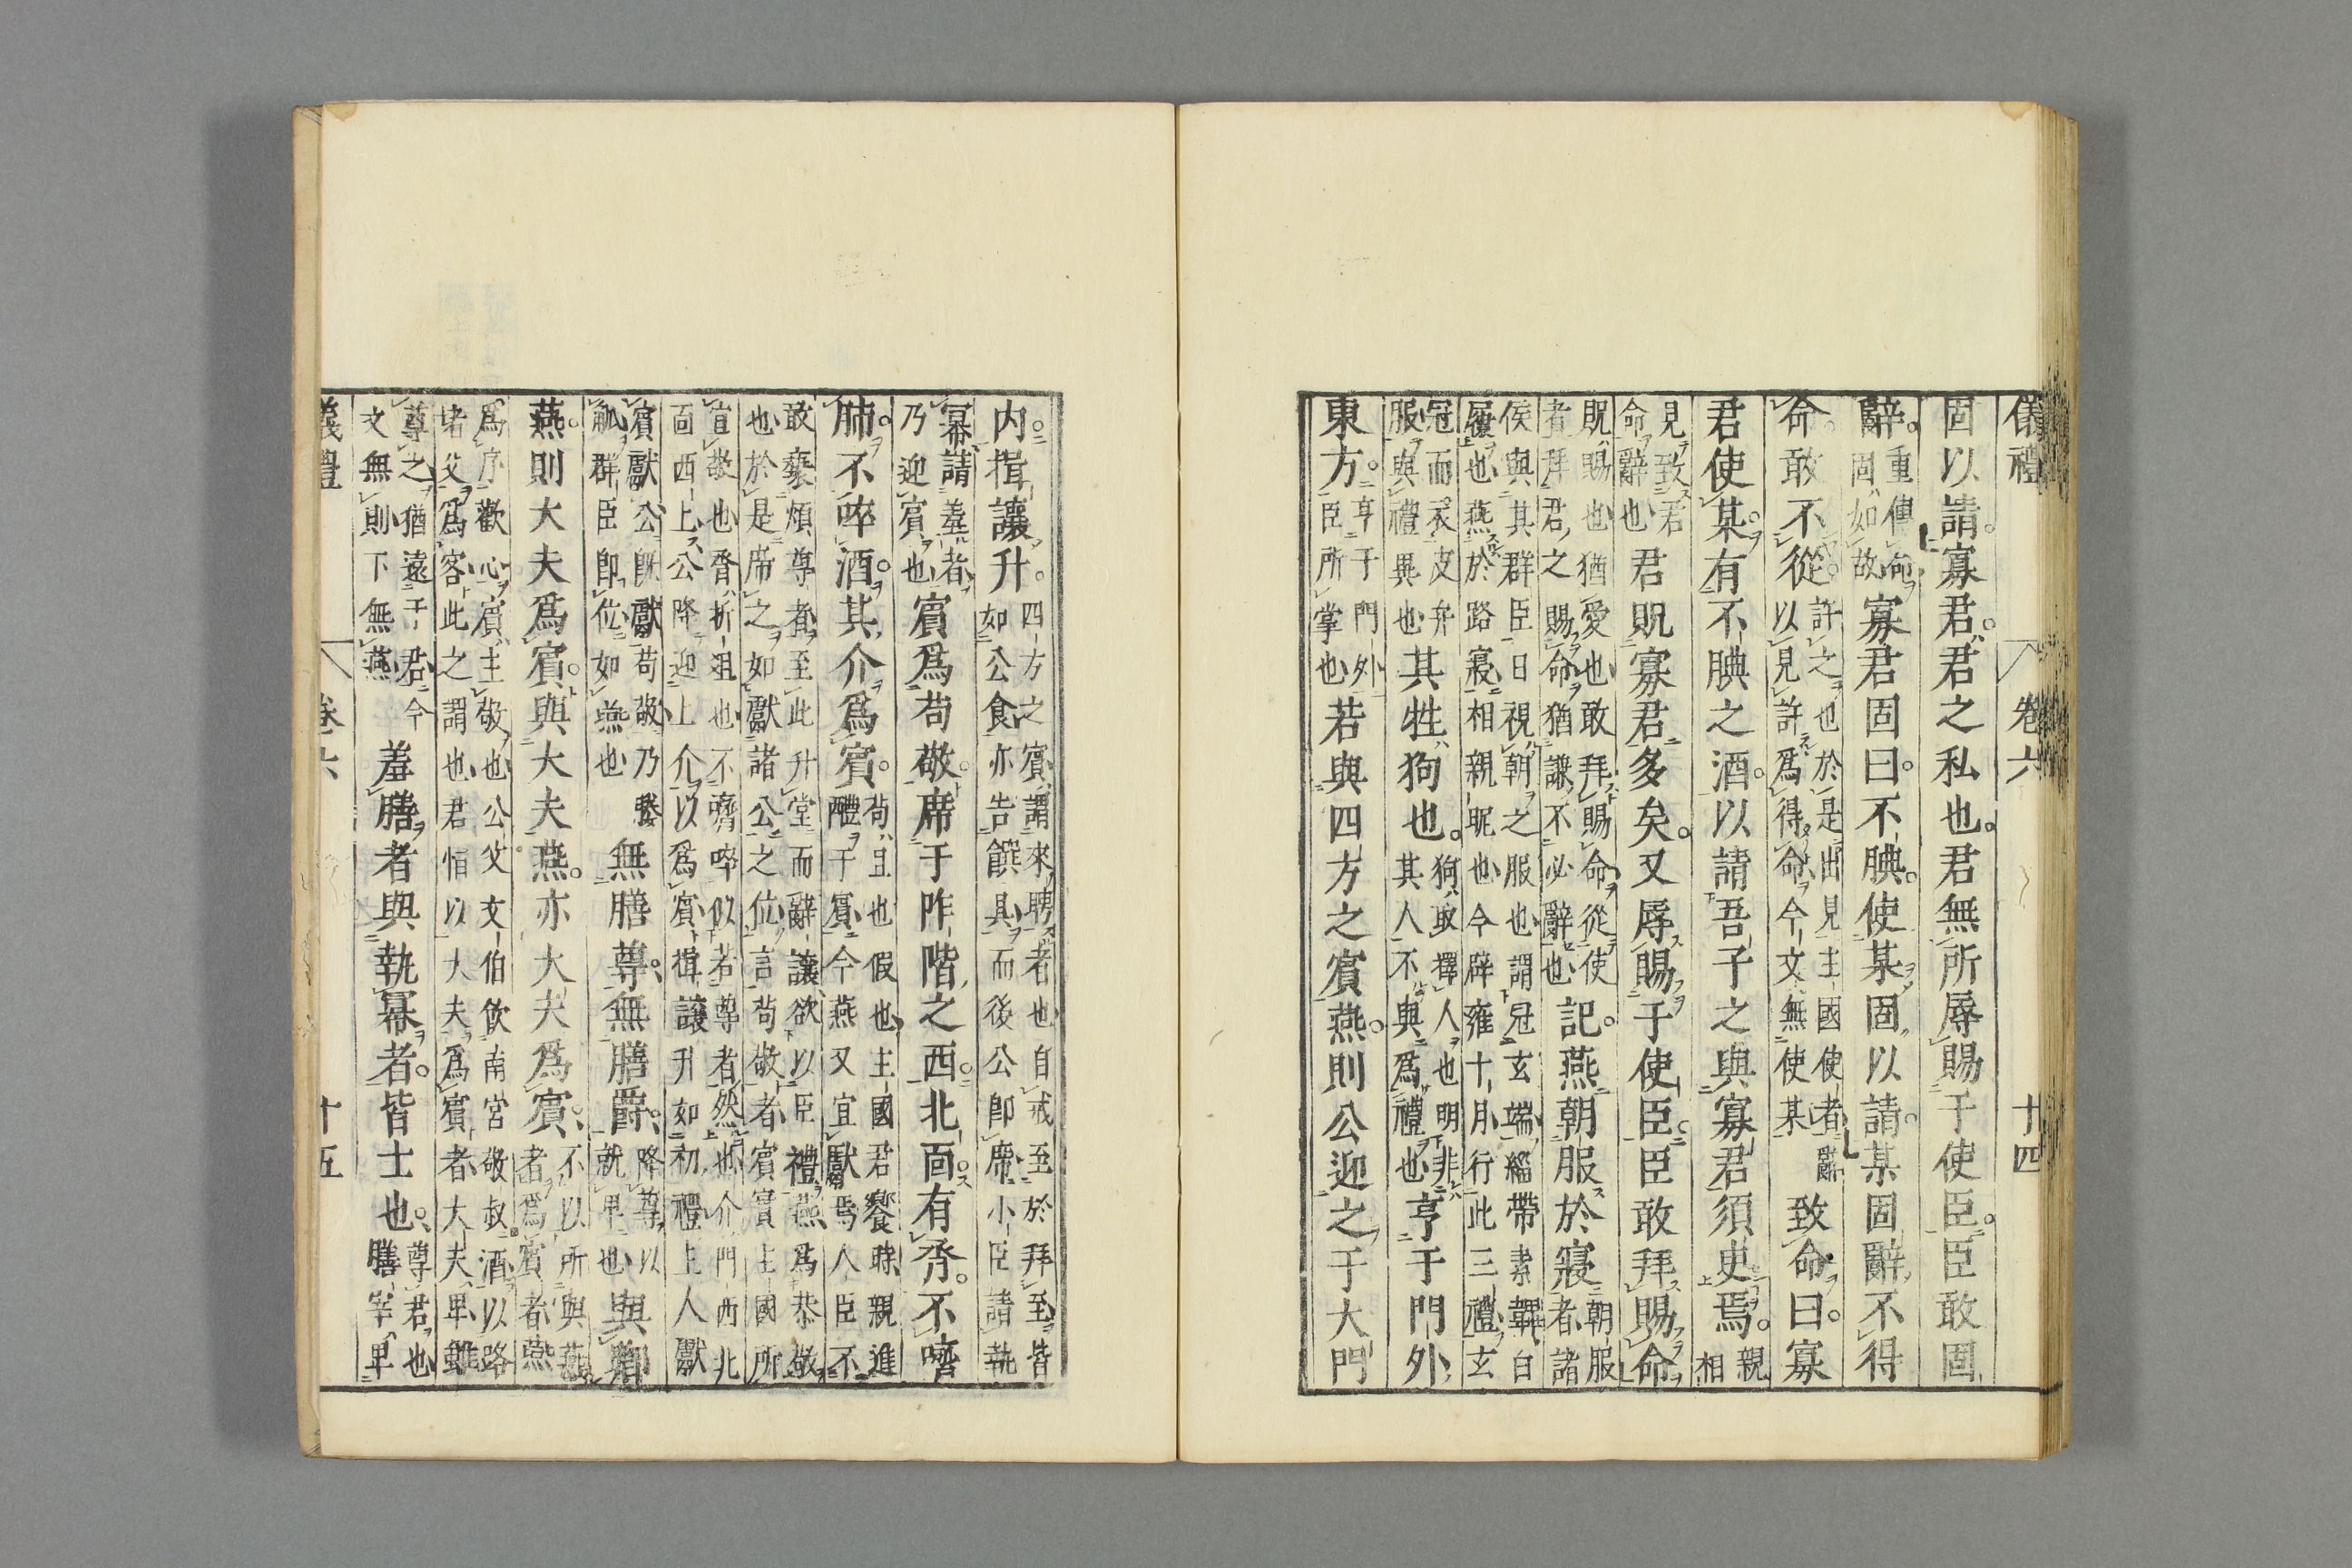 儀禮 卷六 十四
固以請寡君君之私也君無所辱賜于使臣臣敢固
辭重傳命固如故寡君固曰不腆使某固以請某固辭不得
命敢不從許之也於是出見主國使者辭以見許爲得命今文無使某致命曰寡
君使某有不腆之酒以請吾子之與寡君須臾焉親相
見致君命辭也君貺寡君多矣又辱賜于使臣臣敢拜賜命
貺賜也猶愛也敢拜賜命從使者拜君之賜命猶謙不必辭也記燕朝服於寢朝服者諸
侯與其群臣日視朝之服也謂冠玄端緇帶素韠白屨也燕於路寢相親昵也今辟雍十月行此三禮玄
冠而衣皮弁服與禮異也其牲狗也狗取擇人也明非其人不與爲禮也亨于門外
東方亨于門外臣所掌也若與四方之賓燕則公迎之于大門
内揖讓升四方之賓謂來聘者也自戒至於拜至皆如公食亦告饌具而後公卽席小臣請執
冪請羞者乃迎賓也賓爲苟敬席于阼階之西北面有脀不嚌
肺不啐酒其介爲賓苟且也假也主國君饗時親進醴于賓今燕又宜獻焉人臣不
敢褻煩尊者至此升堂而辭讓欲以臣禮燕爲恭敬也於是席之如獻諸公之位言苟敬者賓實主國所
宜敬也脀折俎也不嚌啐似若尊者然也介門西北面西上公降迎上介以爲賓揖讓升如初禮主人獻
賓獻公旣獻苟敬乃媵觚群臣卽位如燕也無膳尊無膳爵降尊以就卑也與卿
燕則大夫爲賓與大夫燕亦大夫爲賓不以所與燕者爲賓者燕
爲序歡心賓主敬也公父文伯飮南宮敬叔酒以路堵父爲客此之謂也君恒以大夫爲賓者大夫卑雖
尊之猶遠于君今文無則下無燕羞膳者與執冪者皆士也尊君也膳宰卑
義禮 卷六 十五